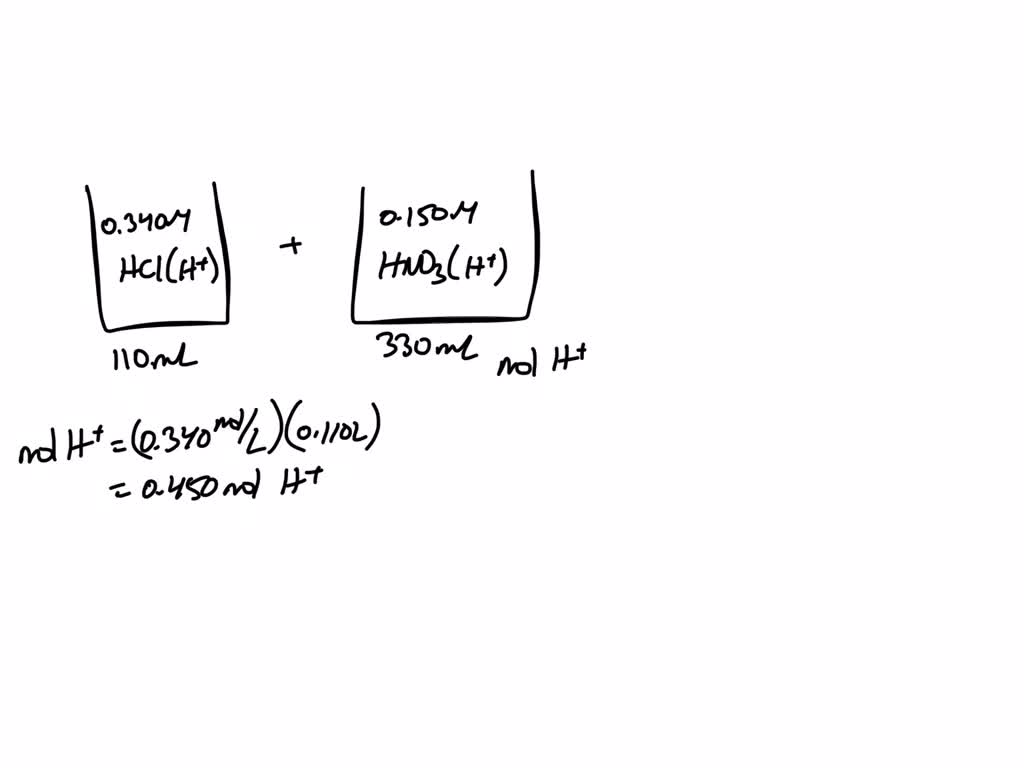 0.340M
HCl(H⁺)
110mL
+
0.150M
HNO₃(H⁺)
330mL
mol H⁺
mol H⁺ = (0.340 mol/L)(0.110L)
= 0.450 mol H⁺